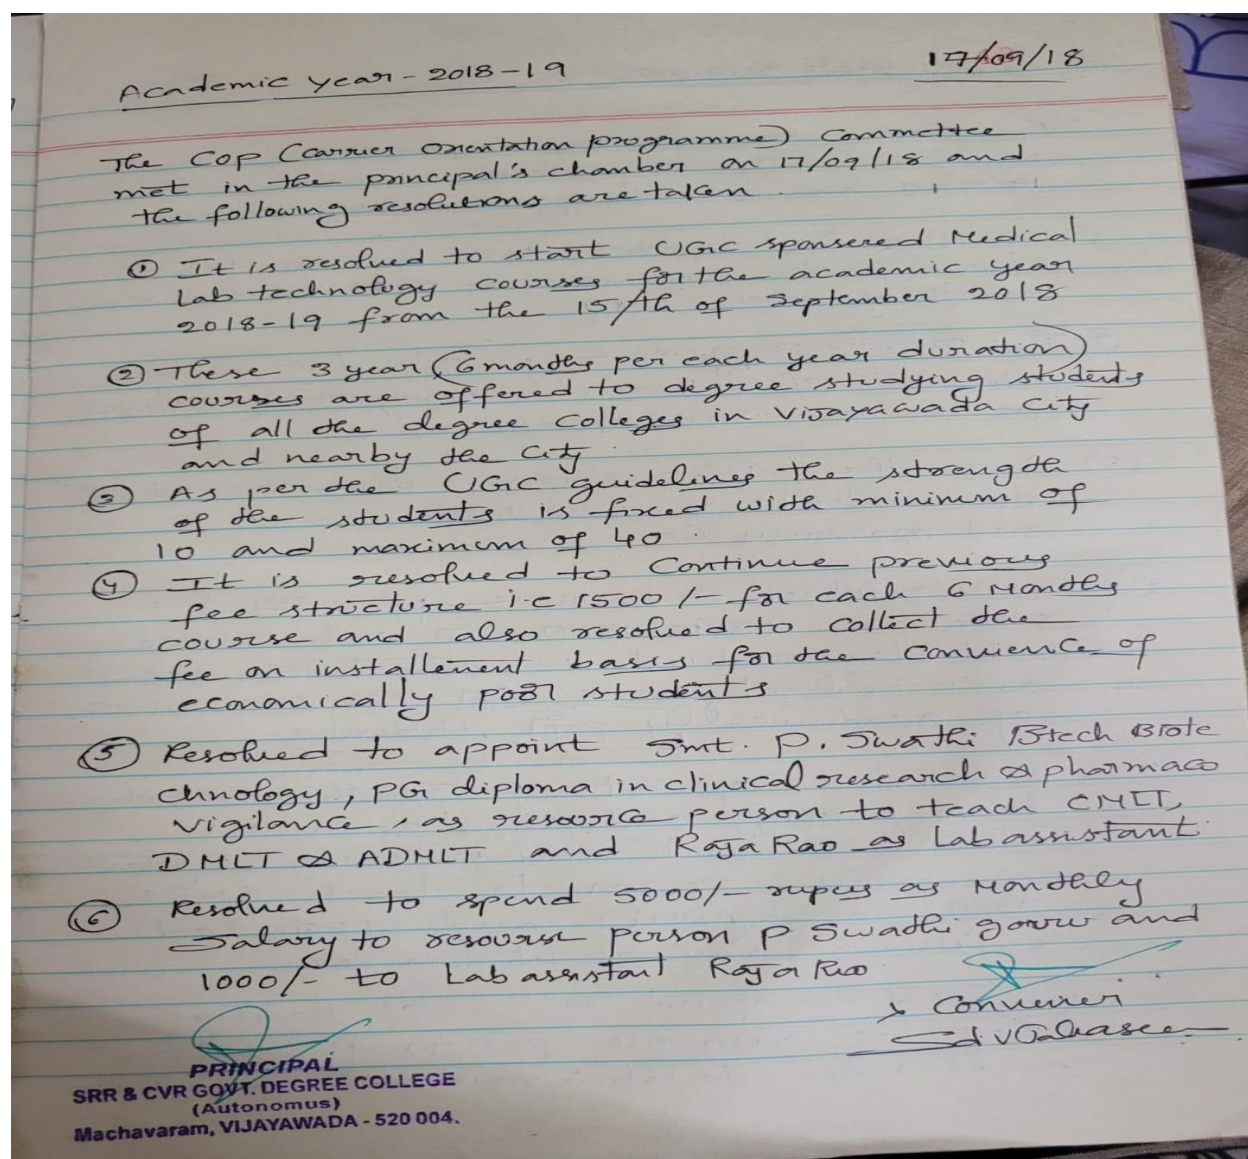 Academic year - 2018-19
17/09/18
The COP (Carrier Orientation programme) Commettee
met in the principal's chamber on 17/09/18 and
the following resolutions are taken.
① It is resolved to start UGC sponsered Medical
Lab technology courses for the academic year
2018-19 from the 15/th of September 2018
② These 3 year (6 months per each year duration)
courses are offered to degree studying students
of all the degree Colleges in Vijayawada City
and nearby the City.
③ As per the UGC guidelines the strength
of the students is fixed with minimum of
10 and maximum of 40.
④ It is resolved to Continue previous
fee structure i.e 1500/- for each 6 Months
course and also resolved to collect the
fee on installement basis for the convience of
economically poor students
⑤ Resolved to appoint Smt. P. Swathi Btech Biote
chnology, PG diploma in clinical research & pharmaco
vigilance, as resource person to teach CMLT,
DMLT & ADMLT and Raja Rao as Lab assistant.
⑥ Resolved to spend 5000/- rupees as Monthly
Salary to resourse person P Swathi garu and
1000/- to Lab assistant Raja Rao
Convener
PRINCIPAL
SRR & CVR GOVT. DEGREE COLLEGE
(Autonomus)
Machavaram, VIJAYAWADA - 520 004.